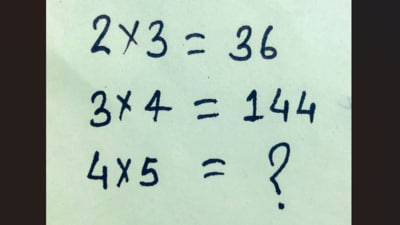 2×3 = 36
3×4 = 144
4×5 = ?